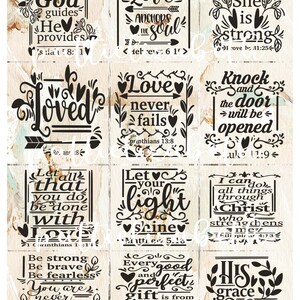 God
guides
He
provides
Isaiah 58:11
Love
ANCHORS
the Soul
She
is
strong
Proverbs 31:25
Loved
Love
never
fails
Corinthians 13:8
Knock
and
the door
will be
opened
Let all
that
you do
be done
with
Love
Let
your
light
shine
I can do
all things
through
Christ
who
strengthens
me
Be strong
Be brave
Be fearless
You are never
Every
good
and
perfect
gift is from
His
grace